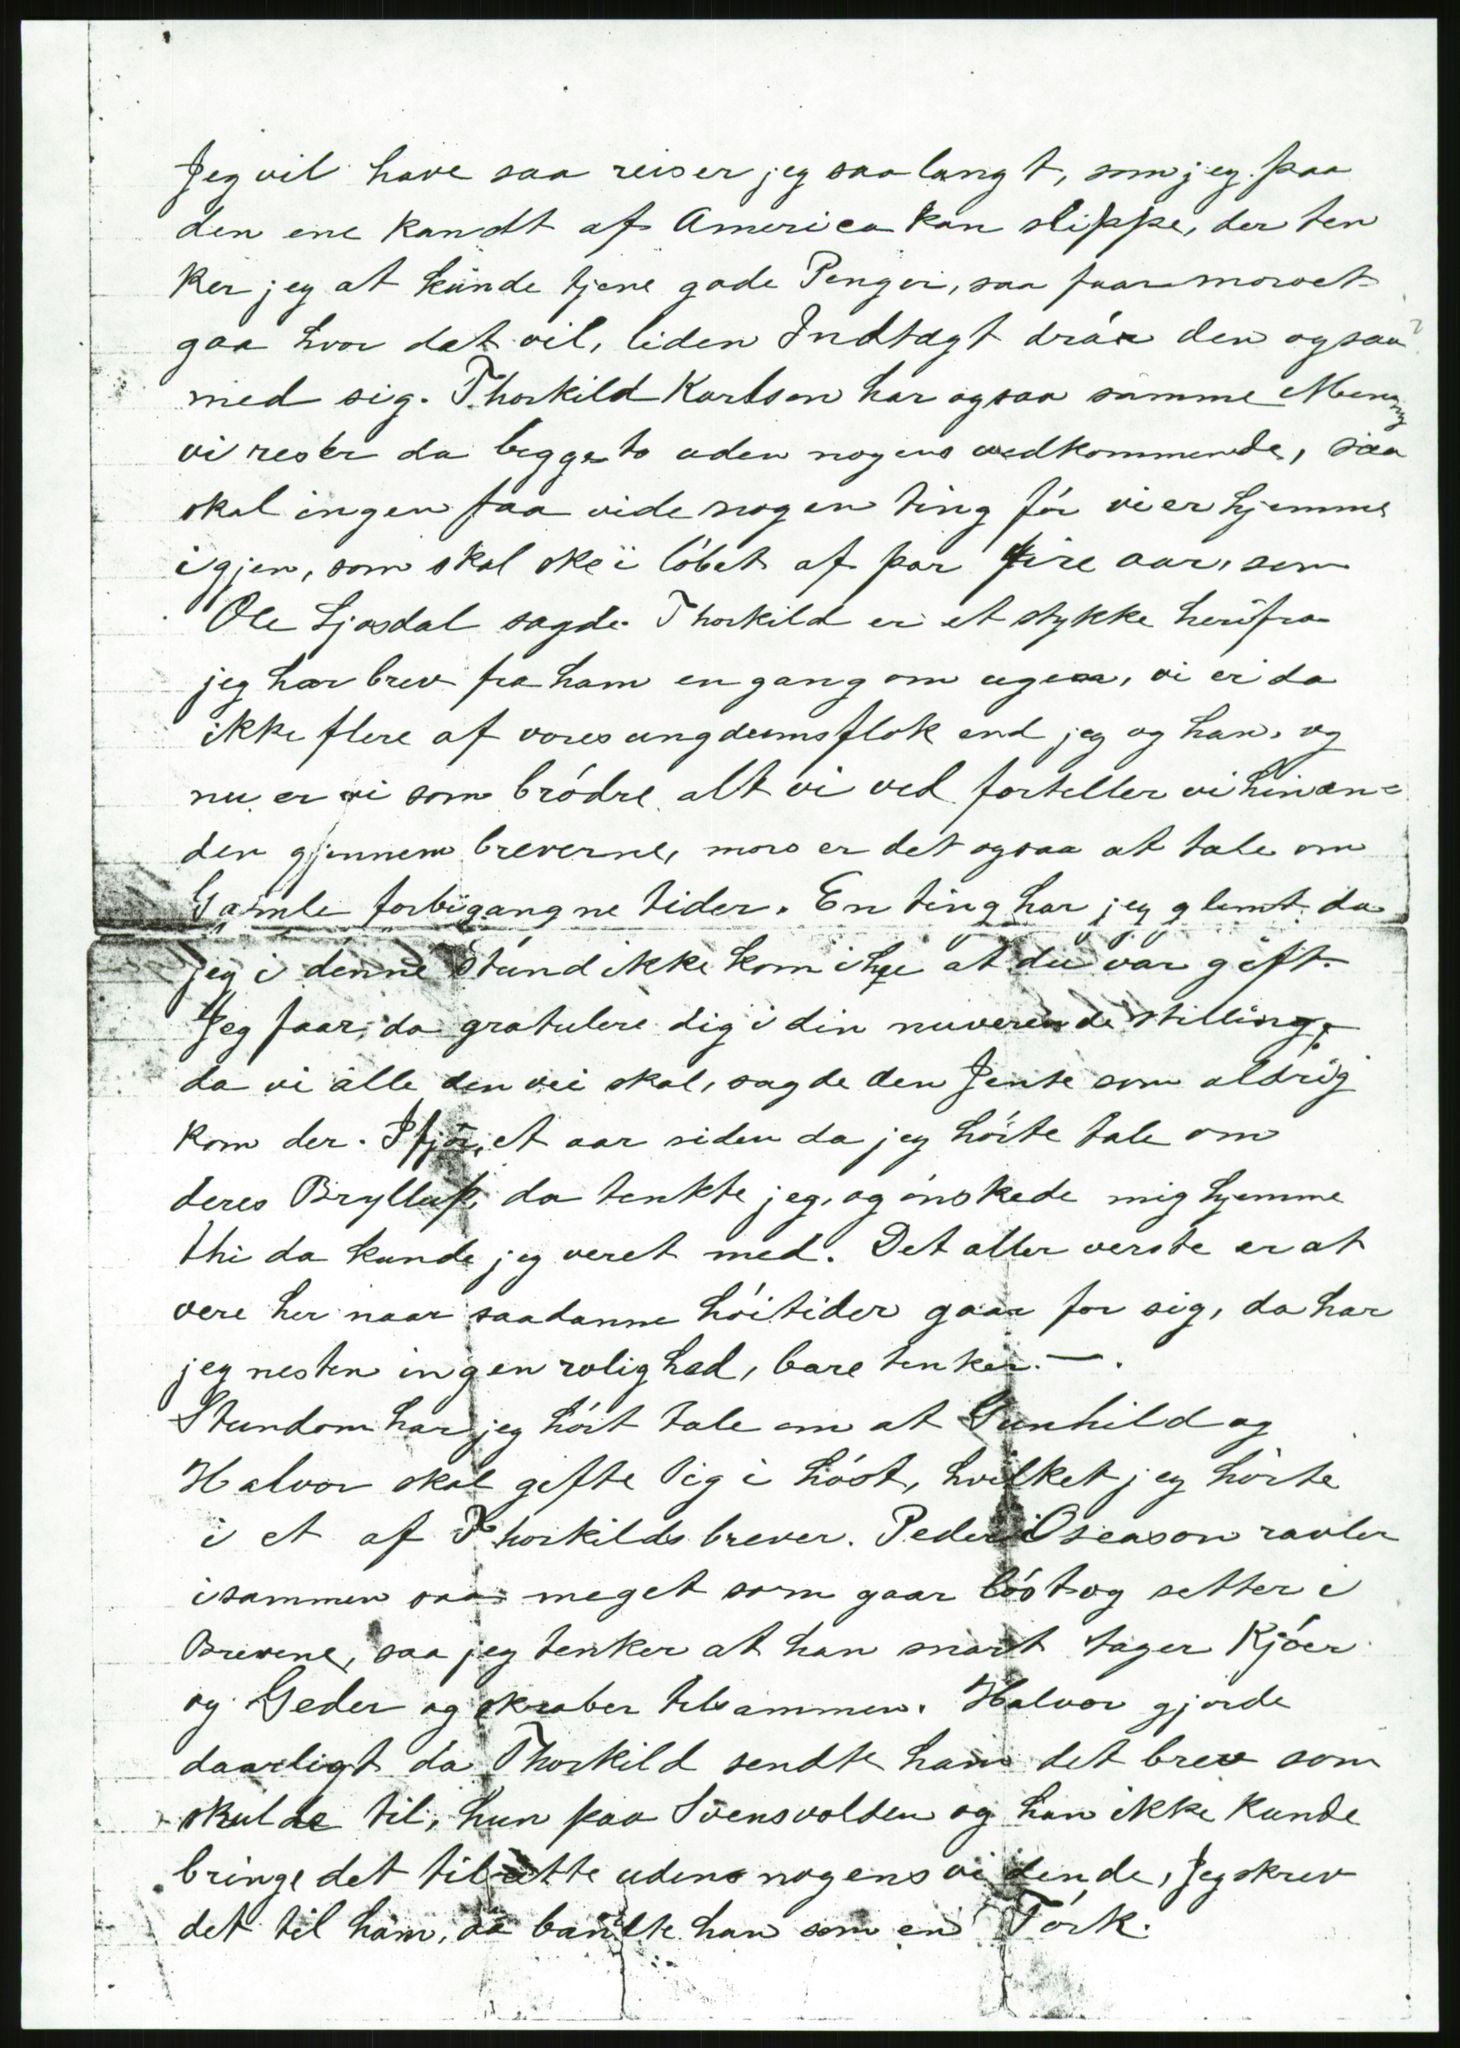 Jeg vil have saa reiser jeg saa langt, som jeg paa
den ene kandt af America kan slippe, der ten
ker jeg at kunde tjene gode Penger, saa faar moroet
gaa hvor det vil, liden Indtægt drar den ogsaa
med sig. Thorkild Karlson har ogsaa samme Mening
vi reser da begge to uden nogens vedkommende, saa
skal ingen faa vide nogen ting för vi er hjemme
igjen, som skal ske i löbet af par fire aar, som
Ole Ljosdal sagde. Thorkild er et stykke herifra
jeg har brev fra ham en gang om ugen, vi er da
ikke flere af vores ungdumsflok end jeg og han, og
nu er vi som brödre alt vi ved forteller vi hinan=
den gjennem breverne, moro er det ogsaa at tale om
Gamle forbigangne tider. En ting har jeg glemt da
jeg i denne stund ikke kom ihu at du var gift.
Jeg faar da gratulere dig i din nuverende stilling,
da vi alle den vei skal, sagde den Jente som aldrig
kom der. I fjör, et aar siden da jeg hörte tale om
deres Bryllup, da tenkte jeg, og önskede mig hjemme
thi da kunde jeg veret med. Det aller verste er at
vere her naar saadanne höitider gaar for sig, da har
jeg nesten ingen rolighed, bare tenker. —.
Stundom har jeg hört tale om at Gunhild og
Halvor skal gifte sig i höst, hvilket jeg hörte
i et af Thorkilds brever. Peder Oseason ravler
isammen saa meget som gaar löst og setter i
Brevene, saa jeg tenker at han snart tager Kjöer
og Geder og skraber tilsammen. Halvor gjorde
daarligt da Thorkild sendte ham det brev som
skulde til, hun paa Svensvolten og han ikke kunde
bringe det tilrette udens nogens vidende, Jeg skrev
det til ham, da bandte han som en Törk.